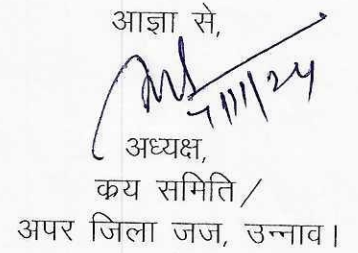 आज्ञा से,
7/11/24
अध्यक्ष,
क्रय समिति /
अपर जिला जज, उन्नाव।